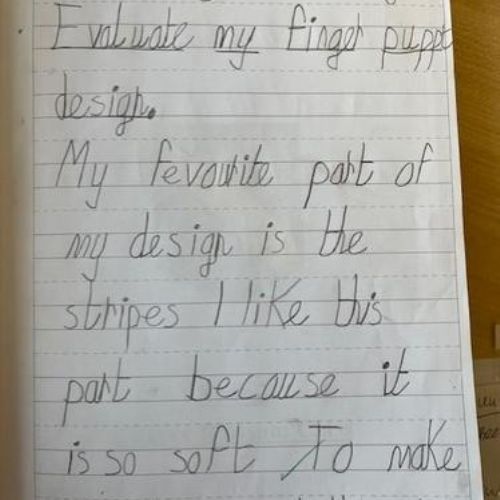 Evaluate my finger puppt
design.
My fevourite part of
my design is the
stripes I like this
part because it
is so soft To make